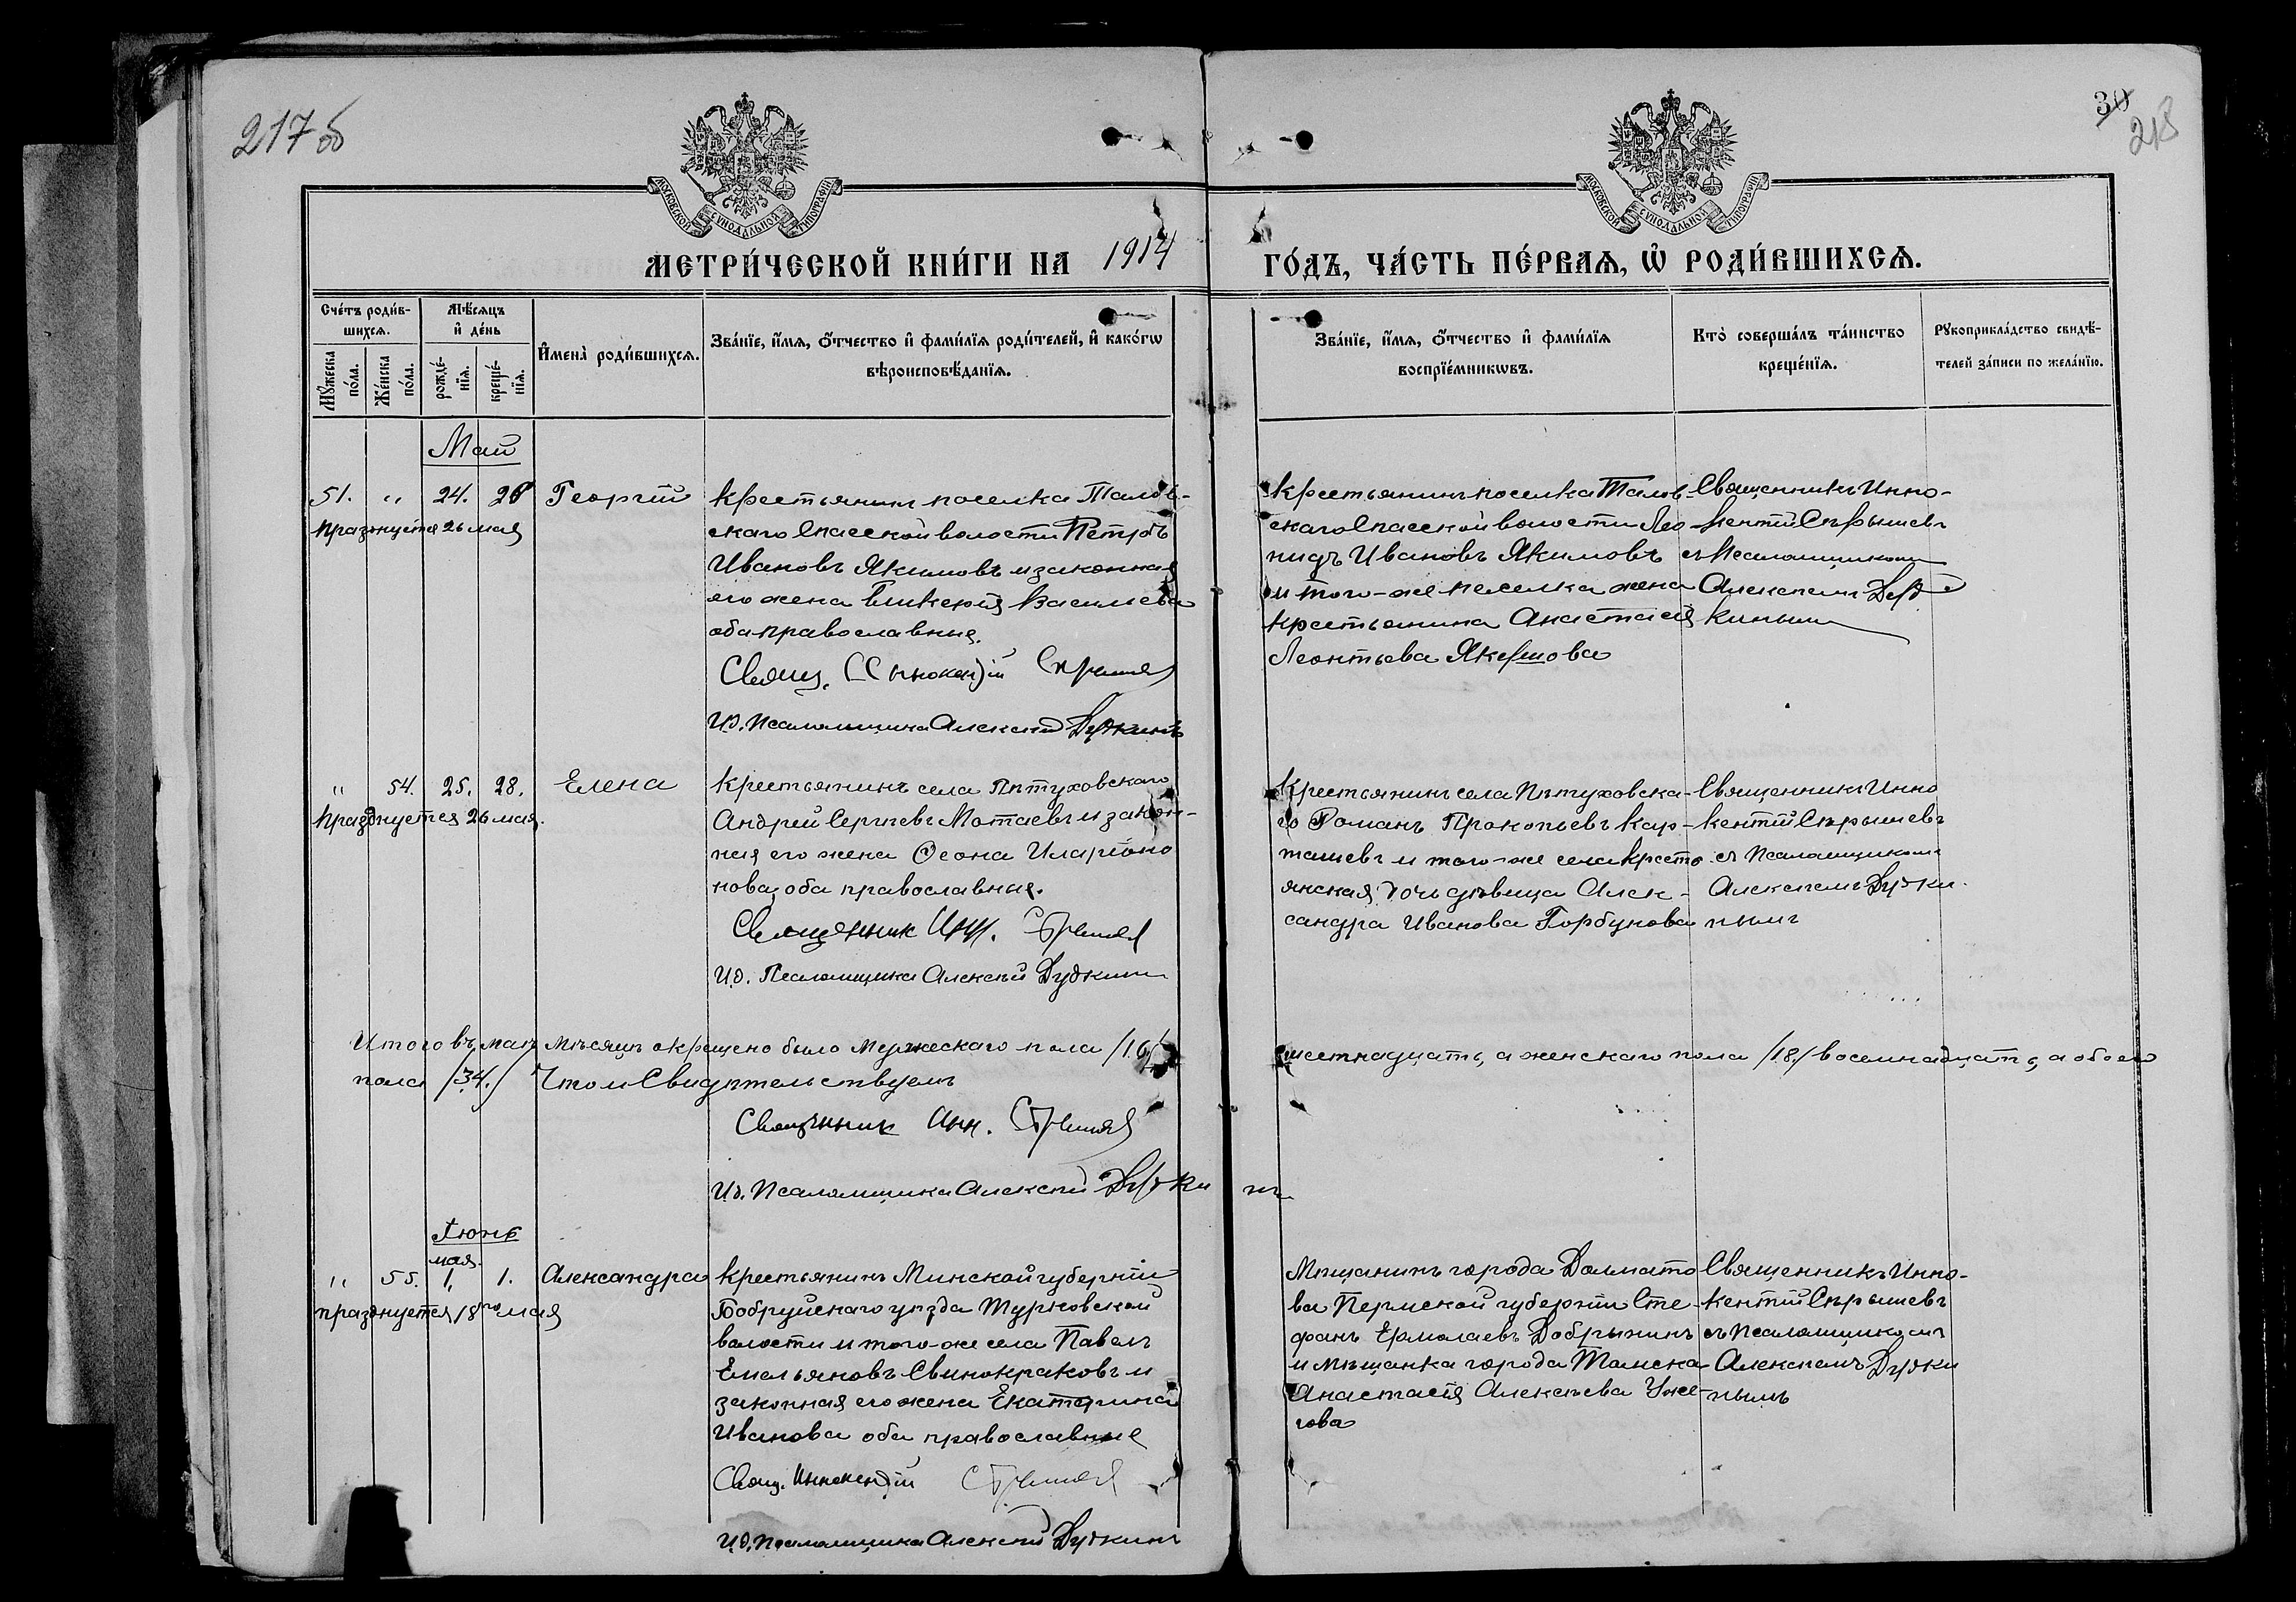 217 об
30
218
МОСКОВСКОЙ СѴНОДАЛЬНОЙ ТИПОГРАФІИ
МОСКОВСКОЙ СѴНОДАЛЬНОЙ ТИПОГРАФІИ
МЕТРИ́ЧЕСКОЙ КНИ́ГИ НА 1914 ГО́ДЪ, ЧА́СТЬ ПЕ́РВАѦ, Ѡ҆ РОДИ́ВШИХСѦ.
Сче́тъ роди́в-
шихсѧ.
Мꙋ́жеска по́ла.
Же́нска по́ла.
Мѣ́сѧцъ
и҆ де́нь
рожде́-
нїѧ.
креще́-
нїѧ.
И҆мена̀ роди́вшихсѧ.
Зва́нїе, и҆́мѧ, ѻ҆́тчество и҆ фами́лїѧ роди́телей, и҆ како́гѡ
вѣроисповѣ́данїѧ.
Зва́нїе, и҆́мѧ, ѻ҆́тчество и҆ фами́лїѧ
воспрїе́мникѡвъ.
Кто̀ соверша́лъ та́инство
креще́нїѧ.
Рꙋкоприкла́дство свидѣ́-
телей за́писи по жела́нїю.
Май
51. " 24. 26 Георгій
празднуется 26 мая
Крестьянинъ поселка Талов-
скаго Спасской волости Петръ
Ивановъ Якимовъ и законная
его жена Гликерія Васильева
оба православные.
Свящ. Иннокентій
И.д. Псаломщика Алексѣй Дудкинъ
Крестьянинъ поселка Талов
скаго Спасской волости Лео
нидъ Ивановъ Якимовъ
и того-же поселка жена
крестьянина Анастасія
Леонтьева Якимова
Священникъ Инно-
кентій Спрышевъ
съ Псаломщикомъ
Алексѣемъ Дуд
кинымъ
" 54. 25. 28. Елена
Празднуется 26 мая.
Крестьянинъ села Пѣтуховскаго
Андрей Сергѣевъ Мотаевъ и закон-
ная его жена Ѳеона Иларіоно
нова, оба православные.
Священник Инн.
И.д. Псаломщика Алексѣй Дудкинъ
Крестьянинъ села Пѣтуховска-
го Романъ Прокопьевъ Кар-
ташевъ и того-же села кресть
янская дочь дѣвица Алек-
сандра Иванова Горбунова
Священникъ Инно
кентій Спрышевъ
съ Псаломщикомъ
Алексѣемъ Дудки-
нымъ
Итого въ маѣ мѣсяцѣ окрещено было мужескаго пола /16/ шестнадцать, а женскаго пола /18/ восемнадцать, а обоего
пола /34./ Что и Свидѣтельствуемъ
Священник Инн.
И.д. Псаломщика Алексѣй Дудкинъ
Іюнь
мая.
" 55. 1. 1. Александра
празднуется 18го мая
Крестьянинъ Минской губерніи
Бобруйскаго уѣзда Турковской
волости и того-же села Павелъ
Емельяновъ Свинокраковъ и
законная его жена Екатерина
Иванова оба православные
Свящ. Иннокентій
И.д. Псаломщика Алексѣй Дудкинъ
Мѣщанинъ города Долмато
ва Пермской губерніи Сте-
фанъ Ермолаевъ Добрынинъ
и мѣщанка города Томска
Анастасія Алексѣева Уже-
гова
Священникъ Инно-
кентій Спрышевъ
съ Псаломщикомъ
Алексѣемъ Дудки
нымъ